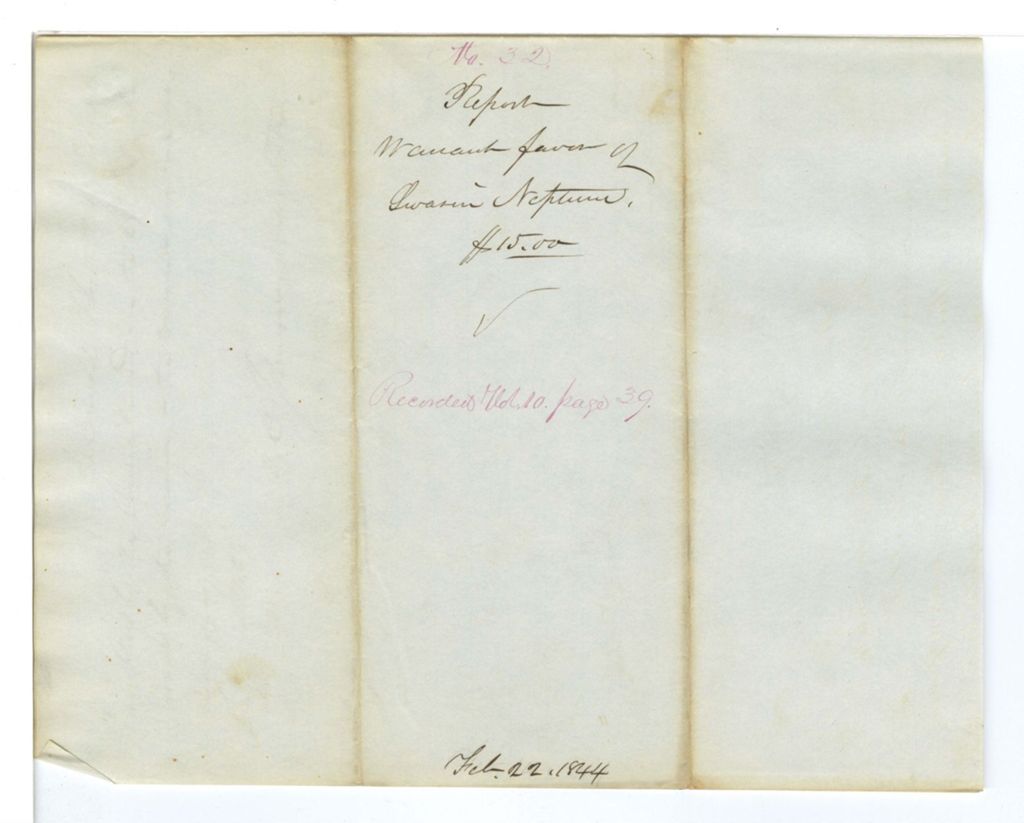 No. 32.
Report
Warrant favor of
Swasin Neptune.
$15.00
Recorded Vol. 10. page 39.
Feb. 22. 1844